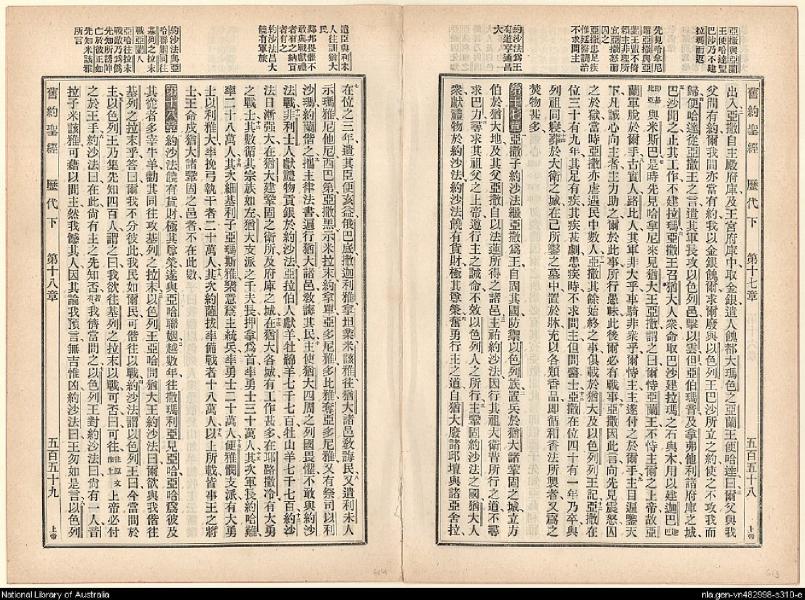 亞撒與亞蘭
王便哈達盟
巴沙乃不建
拉瑪而返
先見哈拿尼
舊約聖經
歷代下
第十七章
五百五十八
上帝
出入亞撒自主殿府庫及王宮府庫中取金銀遣人餽都大瑪色之亞蘭王便哈達曰爾父與我
父間有約爾我間亦當有約我以金銀餽爾求爾廢與以色列王巴沙所立之約使之不攻我而
歸便哈達從亞撒王之言遣其軍長攻以色列邑擊以雲但亞伯瑪音及拿弗他利諸府庫之城
巴沙聞之止其工作不建拉瑪亞撒王召猶大人衆命取巴沙建拉瑪之石與木用以建迦巴
與米斯巴是時先見哈拿尼來見猶大王亞撒謂之曰爾恃亞蘭王不恃主爾之上帝故亞
蘭軍脫於爾手古實人路比人其軍非大乎車騎非衆乎爾恃主主遂付之於爾手主目遍鑒天
下凡誠心向主者主力助之爾於此事所行愚昧此後爾必有戰事亞撒因此言向先見震怒囚
之於獄當時亞撒亦虐遇民中數人亞撒其餘始終之事俱載於猶大及以色列列王記亞撒在
位三十有九年其足有疾其疾甚劇患疾時不求問主但問醫士亞撒在位四十有一年乃卒與
列祖同寢葬於大衛之城在己所鑿之墓中置於牀充以各類香品即循和香法所製者又爲之
焚物甚多
第十七章 亞撒子約沙法繼亞撒爲王自固其國防禦以色列族置兵於猶大諸鞏固之城立方
伯於猶大地及其父亞撒自以法蓮所得之諸邑主祐約沙法因行其祖大衛昔所行之道不尋
求巴力尋求其祖父之上帝遵行主之誡命不效以色列人之所行主鞏固約沙法之國猶大人
衆獻禮物於約沙法約沙法饒有貨財極其尊榮奮勇行主之道自猶大廢諸邱壇與諸亞舍拉
約沙法爲王
有道亨通昌
大
遣臣與利未
人往訓猶大
民
鄰邦畏懼不
敢與戰獻禮
者有之納貢
者有之
約沙法昌大
饒有軍旅
約沙法與亞
哈聯姻同往
基列之拉末
戰亞蘭人
舊約聖經
歷代下
第十八章
五百五十九
上帝
在位之三年遣其臣便亥益俄巴底撒迦利雅拿坦業米該雅往猶大諸邑敎誨民又遣利未人
示瑪雅尼他尼西巴第亞撒黑示米拉末約拿單亞多尼雅多比雅奪亞多尼雅又有祭司以利
沙瑪約蘭偕之攜主律法書遍行猶大諸邑敎誨其民主使猶大四周之列國畏懼不敢與約沙
法戰非利士人獻禮物貢銀於約沙法亞拉伯人獻羊牡綿羊七千七百牡山羊七千七百約沙
法日漸强大在猶大建鞏固之衛所及府庫之城在猶大各城有工作甚多在耶路撒冷有大勇
之戰士其數循其宗族如左猶大支派之千夫長押拿爲首率勇士三十萬人其次軍長約哈難
率二十八萬人其次細基利子亞瑪斯雅樂意事主統兵率勇士二十萬人便雅憫支派有大勇
士以利雅大率挽弓執干者二十萬人其次約薩拔率備戰者十八萬人以上所載皆事王之將
士王命戍猶大諸鞏固之邑者不在此數
第十八章 約沙法饒有貨財極其尊榮遂與亞哈聯姻越數年往撒瑪利亞見亞哈亞哈爲彼及
其從者多宰牛羊勸其同往攻基列之拉末以色列王亞哈問猶大王約沙法曰爾欲與我偕往
基列之拉末乎答曰爾我不分彼此我民如爾民可偕往以戰約沙法謂以色列王曰今當問於
主以色列王乃集先知四百人謂之曰我欲往基列之拉末以戰可否曰可往上帝必付
之於王手約沙法曰在此尚有主之先知否我儕當問之以色列王對約沙法曰尚有一人音
拉子米該雅可藉以問主然我憾其人因其論我預言無吉惟凶約沙法曰王勿如是言以色列